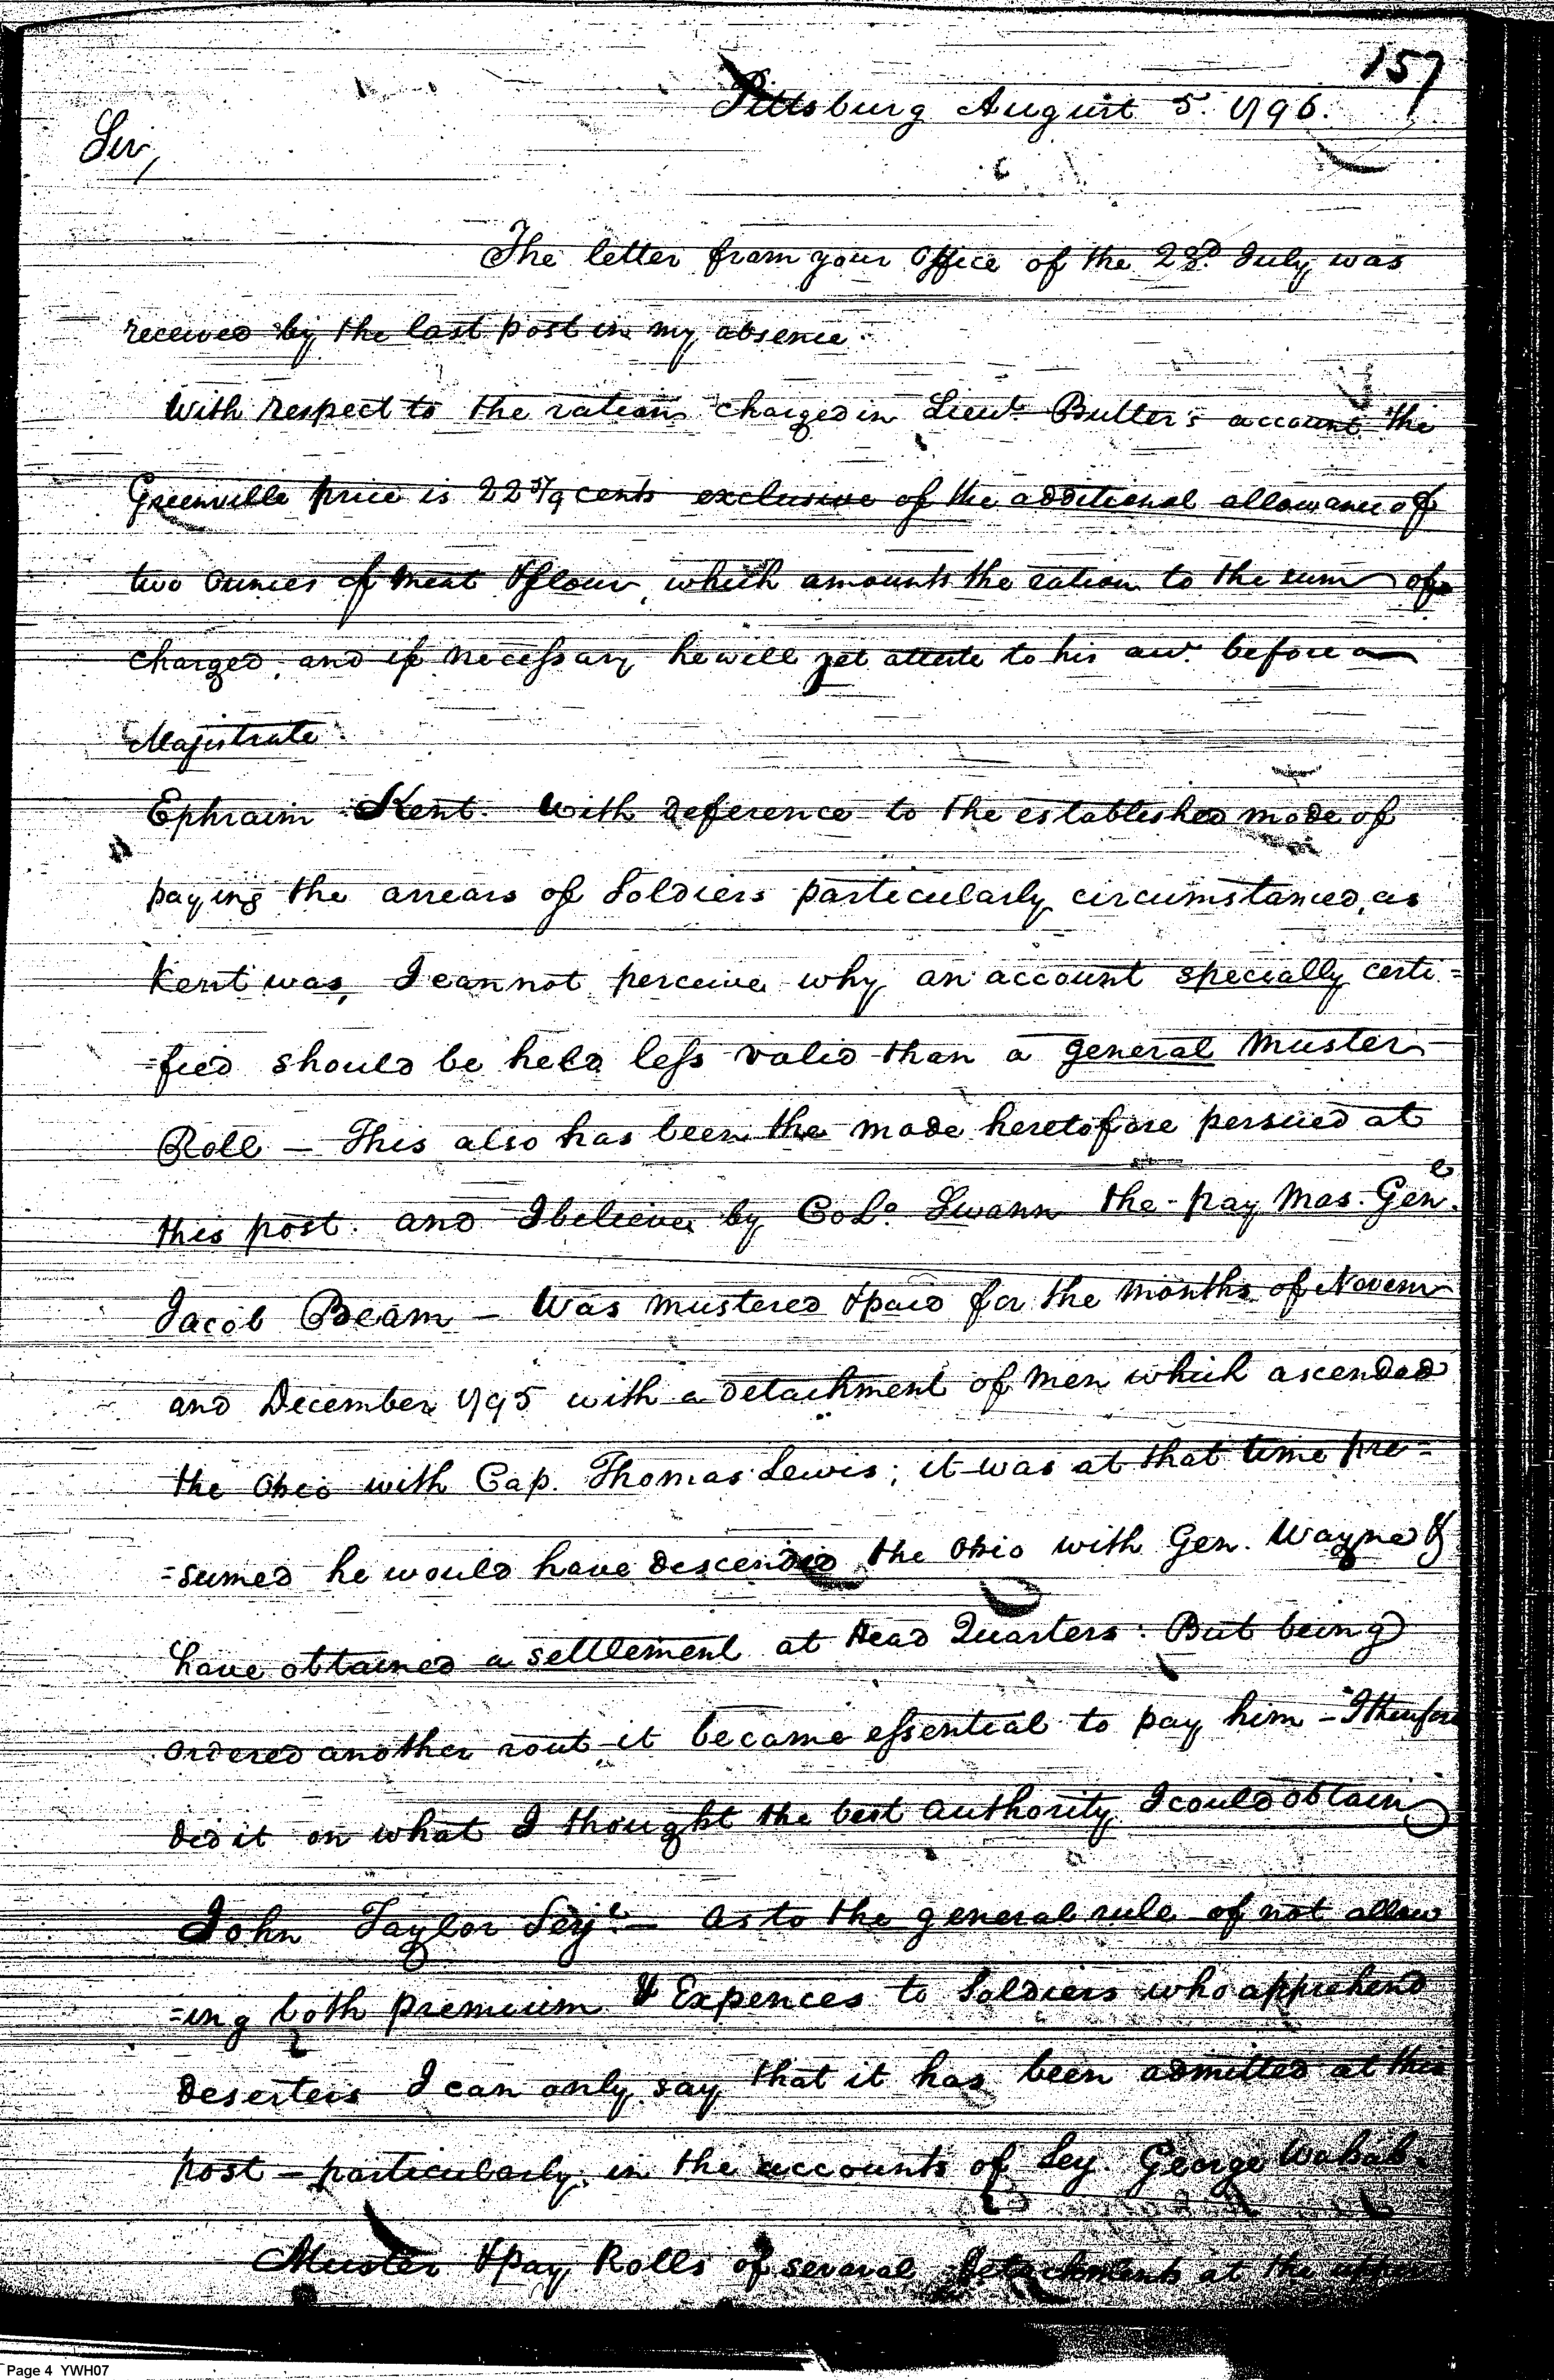 157
Pittsburg August 5. 1796.
Sir,
The letter from your Office of the 23d. July was
received by the last post in my absence.
With respect to the rations charged in Lieut. Butler's account the
Greenville price is 22 5/9 cents exclusive of the additional allowance of
two ounces of meat & flour, which amounts the ration to the sum of
charged, and if necessary he will yet atteste to his acct. before a
Majistrate.
Ephraim Kent. With deference to the established mode of
paying the arrears of Soldiers particularly circumstanced, as
Kent was, I cannot perceive why an account specially certi=
=fied should be held less valid than a general Muster
Roll — This also has been the mode heretofore persued at
this post. and I believe by Colo. Swann the pay Mas. Genl.
Jacob Beam — Was mustered & paid for the months of Novem
and December 1795 with a detachment of men which ascended
the Ohio with Cap. Thomas Lewis; it was at that time pre=
=sumed he would have descended the Ohio with Gen. Wayne &
have obtained a settlement at Head Quarters. But being
ordered another rout it became essential to pay him — I therefore
did it on what I thought the best authority I could obtain
John Taylor Serjt. — As to the general rule of not allow
=ing both premium & Expences to Soldiers who apprehend
deserters I can only say that it has been admitted at this
post — particularly in the accounts of Sej. George Wahab.
Muster & pay Rolls of several detachments at the upper
Page 4 YWH07